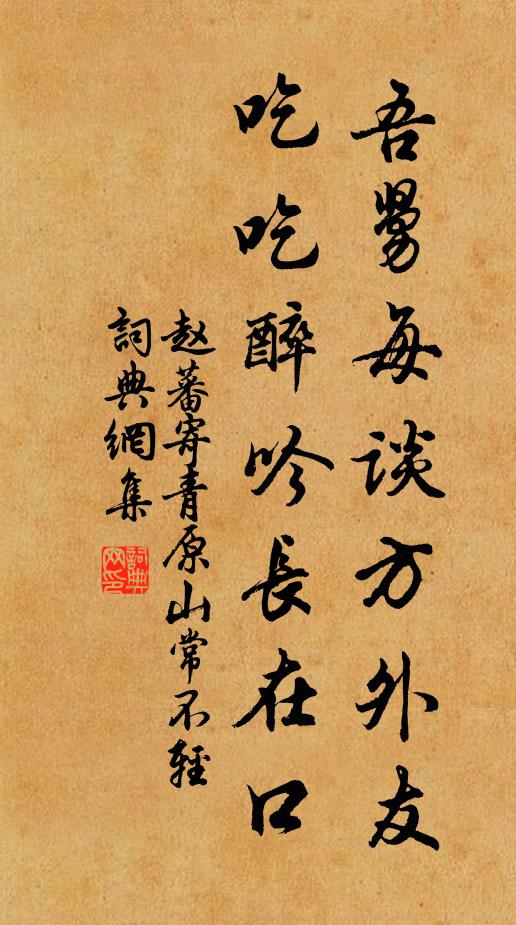 吾舅每談方外友
吃吃醉吟長在口
赵蕃寄青原山常不輕
詞典網集
詞典網印